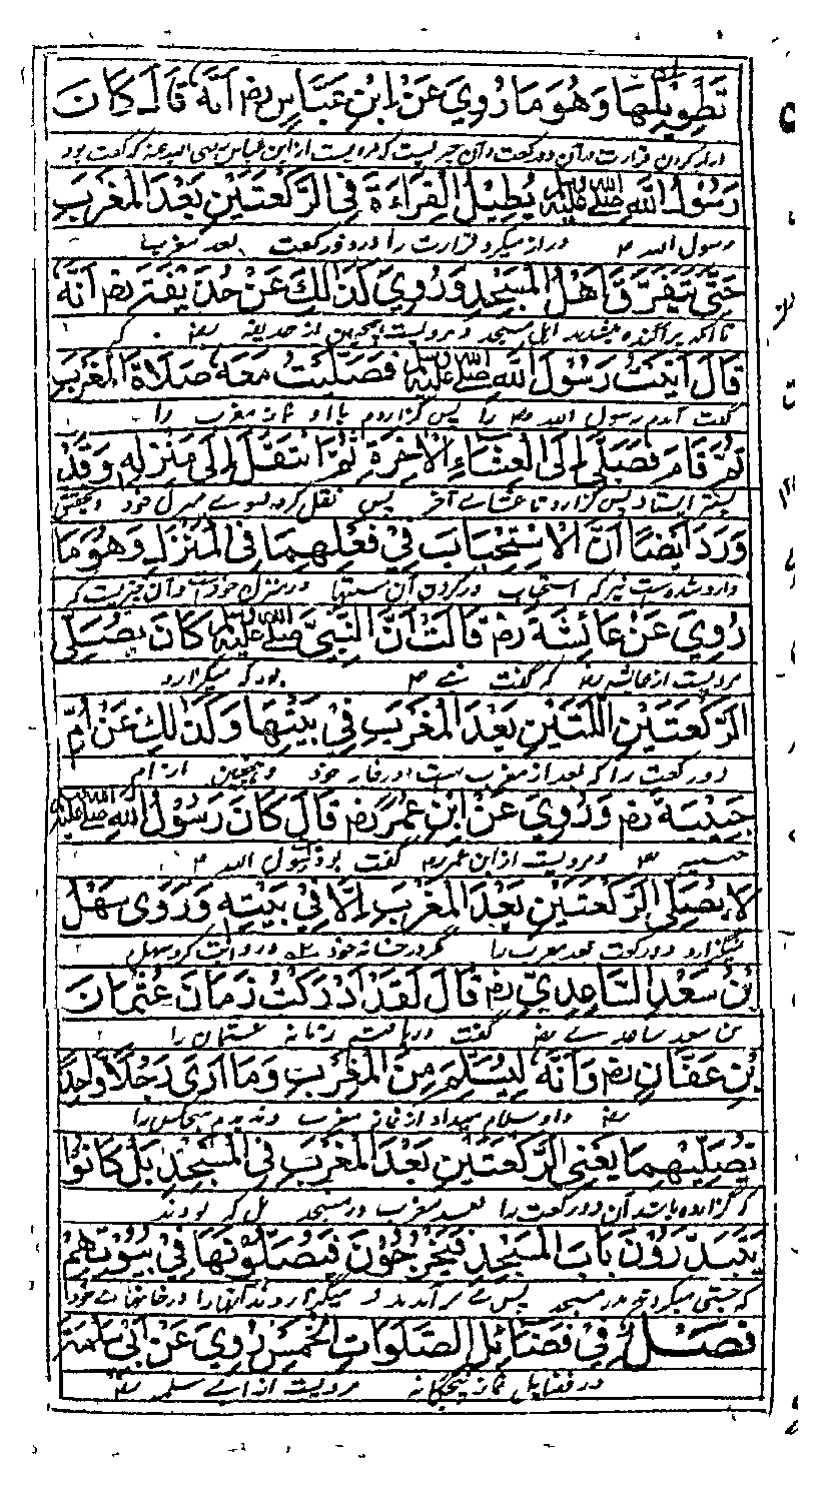 تَطْوِيْلُهَا وَهُوَ مَا رُوِيَ عَنْ اِبْنِ عَبَّاسٍ رض اَنَّهٗ قَالَ كَانَ
دراز کردن قرارت در آن دو رکعت و آن چیزیست که مرویست از ابن عباس رضی الله عنه که گفت بود
رَسُوْلُ اللّٰهِ صلى الله عليه وسلم يُطِيْلُ الْقِرَاءَةَ فِى الرَّكْعَتَيْنِ بَعْدَ الْمَغْرِبِ
رسول الله ص دراز میکرد قرارت را در دو رکعت بعد مغرب
حَتّٰى يَتَفَرَّقَ اَهْلُ الْمَسْجِدِ وَرُوِيَ كَذٰلِكَ عَنْ حُذَيْفَةَ رض اَنَّهٗ
تا آنکه پراگنده میشدند اهل مسجد و مرویست همچنین از حذیفه رض که
قَالَ اَتَيْتُ رَسُوْلَ اللّٰهِ صلى الله عليه وسلم فَصَلَّيْتُ مَعَهٗ صَلَاةَ الْمَغْرِبِ
گفت آمدم رسول الله ص را پس گزاردم با او نماز مغرب را
ثُمَّ قَامَ فَصَلّٰى اِلَى الْعِشَاءِ الْاٰخِرَةِ ثُمَّ انْتَقَلَ اِلٰى مَنْزِلِهٖ وَقَدْ
پستر ایستاد پس گزارد تا عشاے آخر پس نقل کرد بسوے منزل خود و تحقیق
وَرَدَ اَيْضًا اَنَّ الْاِسْتِحْبَابَ فِيْ فِعْلِهِمَا فِى الْمَنْزِلِ وَهُوَ مَا
وارد شده ست نیز که استحباب در کردن آن سنتها در منزل خودست و آن چیزیست که
رُوِيَ عَنْ عَائِشَةَ رض قَالَتْ اَنَّ النَّبِيَّ صلى الله عليه وسلم كَانَ يُصَلِّى
مرویست از عایشه رض که گفت نبی ص بود که میگزارد
الرَّكْعَتَيْنِ اللَّتَيْنِ بَعْدَ الْمَغْرِبِ فِيْ بَيْتِهَا وَكَذٰلِكَ عَنْ اُمِّ
دو رکعت را که بعد از مغرب ست در خانه خود و همچنین از ام
حَبِيْبَةَ رض وَرُوِيَ عَنْ ابْنِ عُمَرَ رض قَالَ كَانَ رَسُوْلُ اللّٰهِ صلى الله عليه وسلم
حبیبه رض و مرویست از ابن عمر رض گفت بود رسول الله ص
لَا يُصَلِّى الرَّكْعَتَيْنِ بَعْدَ الْمَغْرِبِ اِلَّا فِيْ بَيْتِهٖ وَرَوٰى سَهْلُ
نمیگزارد دو رکعت بعد مغرب را مگر در خانه خود و روایت کرد سهل
بْنُ سَعْدِ السَّاعِدِيِّ رض قَالَ لَقَدْ اَدْرَكْتُ زَمَانَ عُثْمَانَ
بن سعد ساعدے رض گفت دریافتم زمانه عثمان را
بْنِ عَفَّانَ رض وَاَنَّهٗ لَيُسَلِّمُ مِنَ الْمَغْرِبِ وَمَا اَرٰى رَجُلًا وَاحِدًا
رض و او سلام میداد از نماز مغرب و ندیدم هیچکس را
يُصَلِّيْهِمَا يَعْنِى الرَّكْعَتَيْنِ بَعْدَ الْمَغْرِبِ فِى الْمَسْجِدِ بَلْ كَانُوْا
که گزارده باشد آن دو رکعت را بعد مغرب در مسجد بل که بودند
يَبْتَدِرُوْنَ بَابَ الْمَسْجِدِ فَيَخْرُجُوْنَ فَيُصَلُّوْنَهَا فِيْ بُيُوْتِهِمْ
که جستی میکردند در مسجد پس مے برآمدند و میگزاردند آنها را در خانهاے خود
فَصْلٌ فِيْ فَضَائِلِ الصَّلَوَاتِ الْخَمْسِ رُوِيَ عَنْ اَبِىْ سَلَمَةَ
در فضایل نماز پنجگانه مرویست از ابے سلمه رض